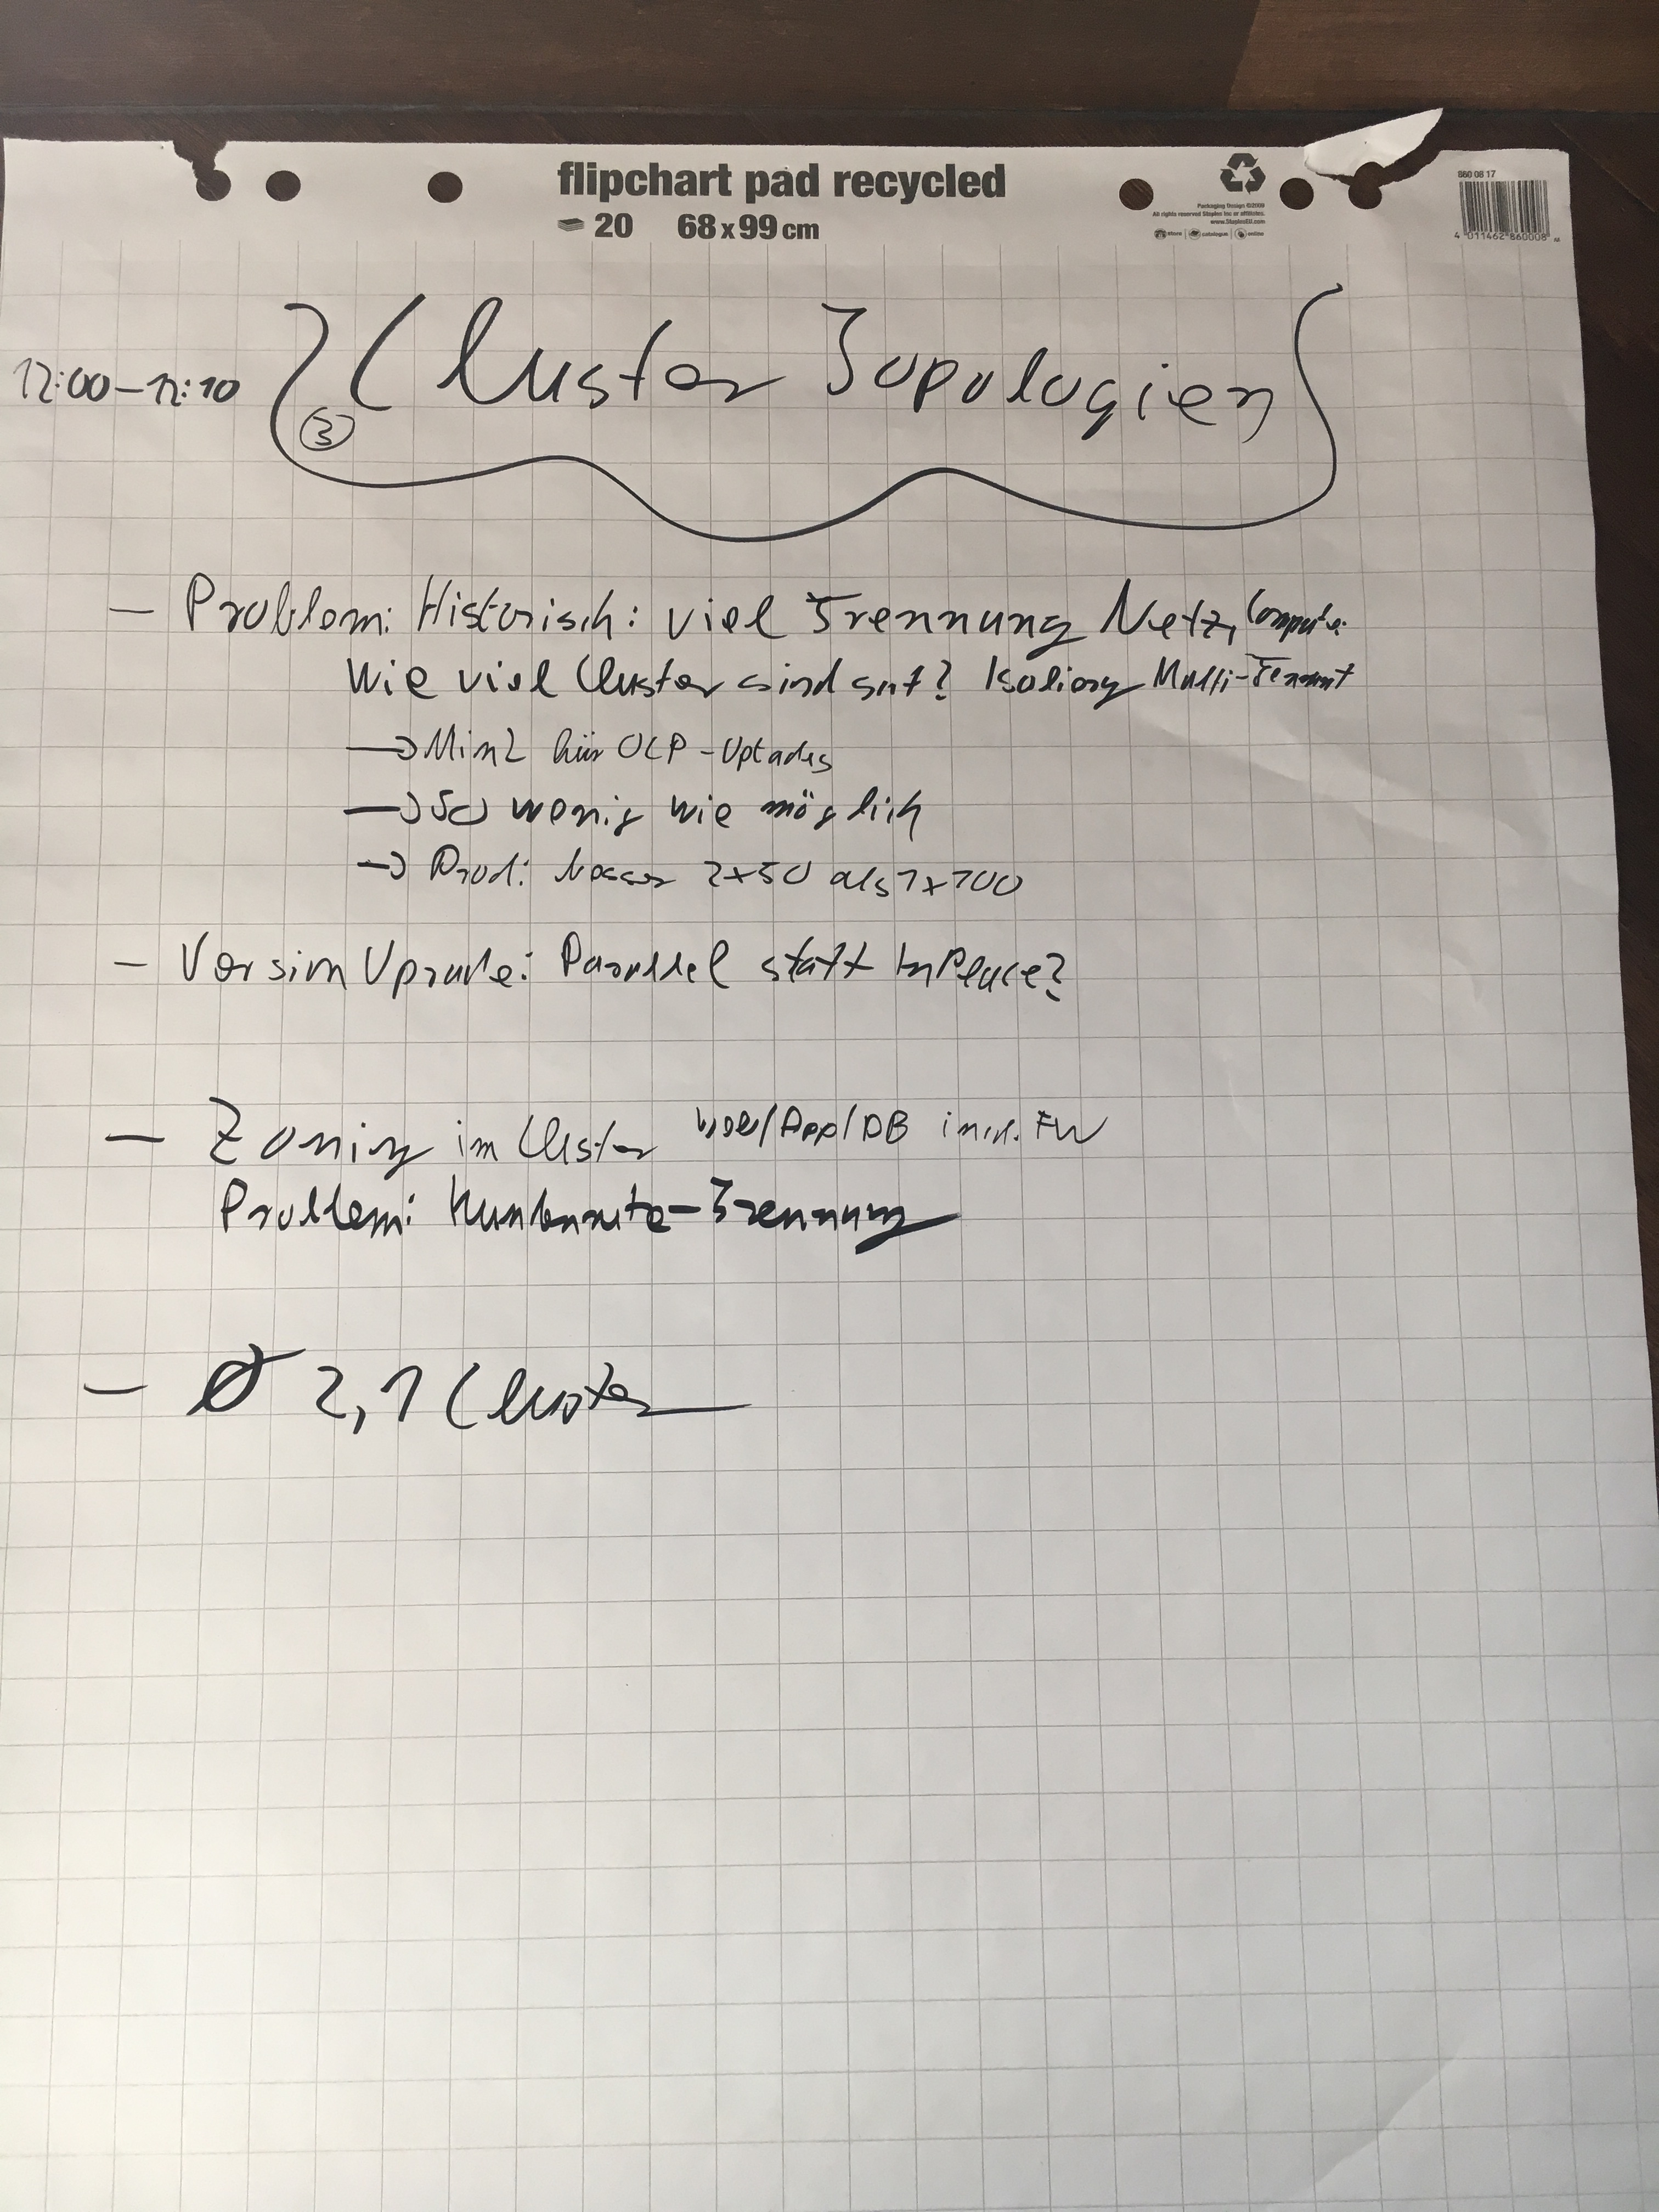 flipchart pad recycled
20 68 x 99 cm
Packaging Design ©2009
All rights reserved Staples Inc or affiliates.
www.StaplesEU.com
store | catalogue | online
860 08 17
4 011462 860008
12:00–12:10
③ Cluster Topologien
– Problem: Historisch: viel Trennung Netz, Compute.
Wie viel Cluster sind gut? Isolierg Multi-Tennant
→ Min 2 für OCP-Uptades
→ So wenig wie möglich
→ Prod: besser 2x50 als 1x100
– Version Uprade: Parallel statt InPlace?
– Zoning im Cluster Web/App/DB incl. FW
Problem: -Trennung
– Ø 2,1 Cluster